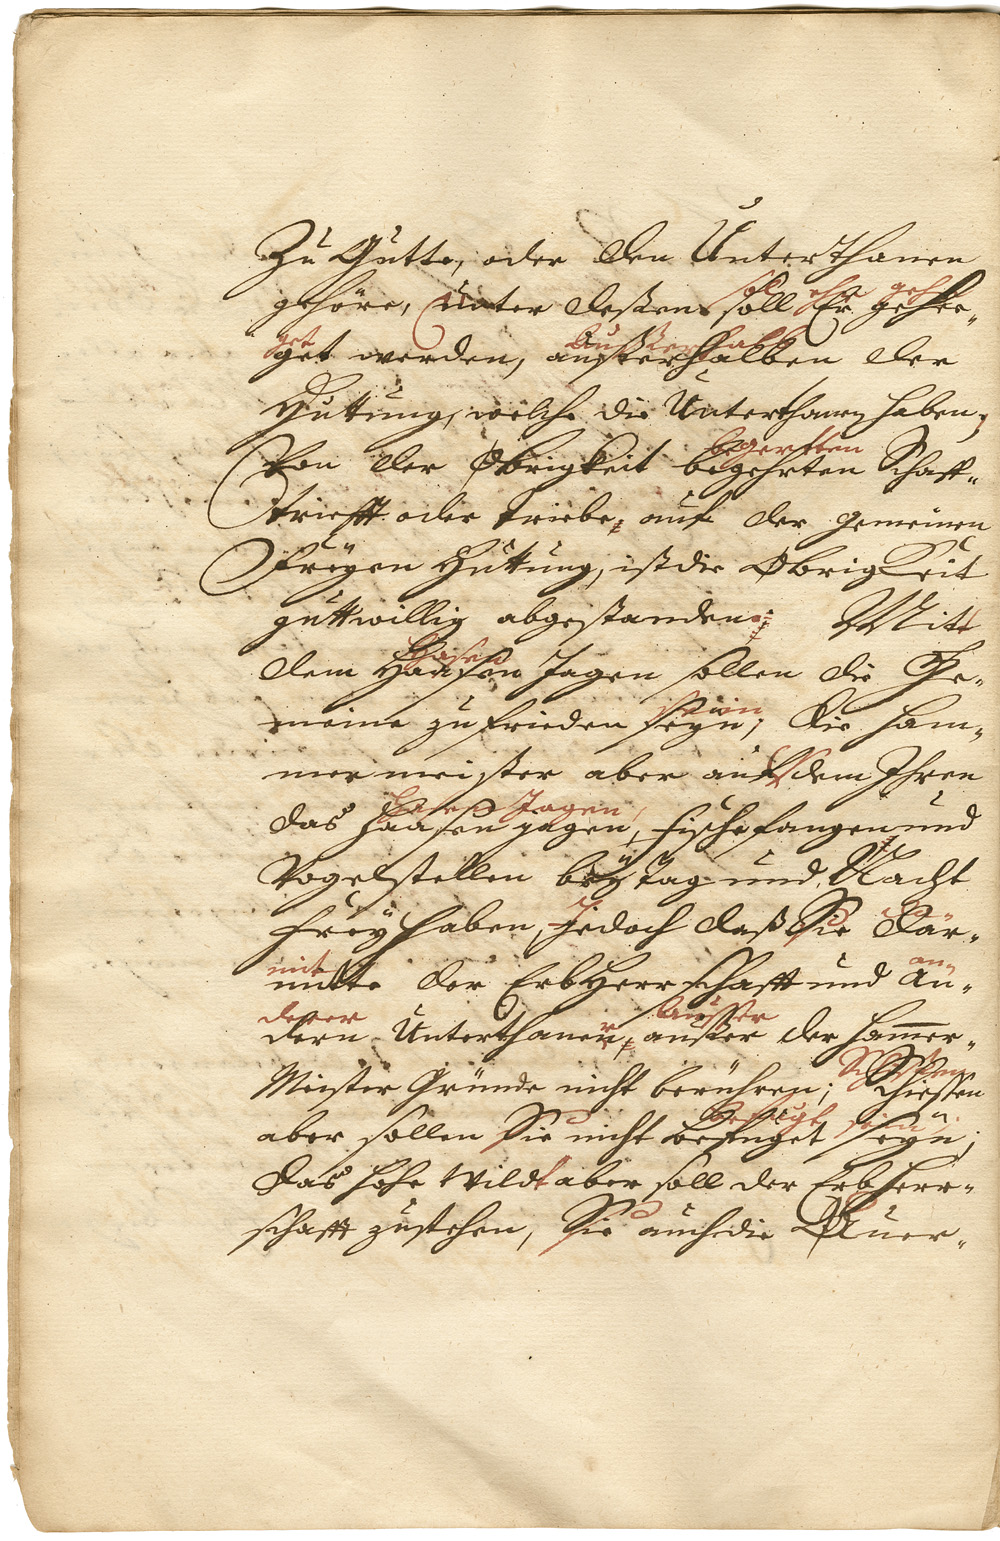 Zu Gutte, oder den Unterthanen
soll ehe geh
gehöre, Unter deßen soll Er gehee„
get Außerhalb
get werden, außerhalben der
Huttung, welche die Unterthanen haben,
begertten
Von der Obrigkeit begehrten Schaff„
trifft oder triebe, auf der gemeinen
Freyen Huttung, ist die Obrigkeit
guttwillig abgestanden; Mitt
Hasen
dem Haasen Jagen sollen die Ge„
sein
meine zufrieden seyn; Die Ham„
mer meister aber auf dem Ihren
Hasen Jagen,
das Haasen jagen, fischefangen und
Vogelstellen bey Tag und Nacht
frey haben, Jedoch daß Sie Dar„
mit an„
mitte der Erb Herrschafft und An„
derer Ausser
dern Unterthanen, außer der Ham̅er„
Meister Gründe nicht berühren; Schiessen
befugt sein
aber sollen Sie nicht befuget seyn;
das hohe Wildt aber soll der Erbherr„
schafft zustehen, Sie auch die Auer„